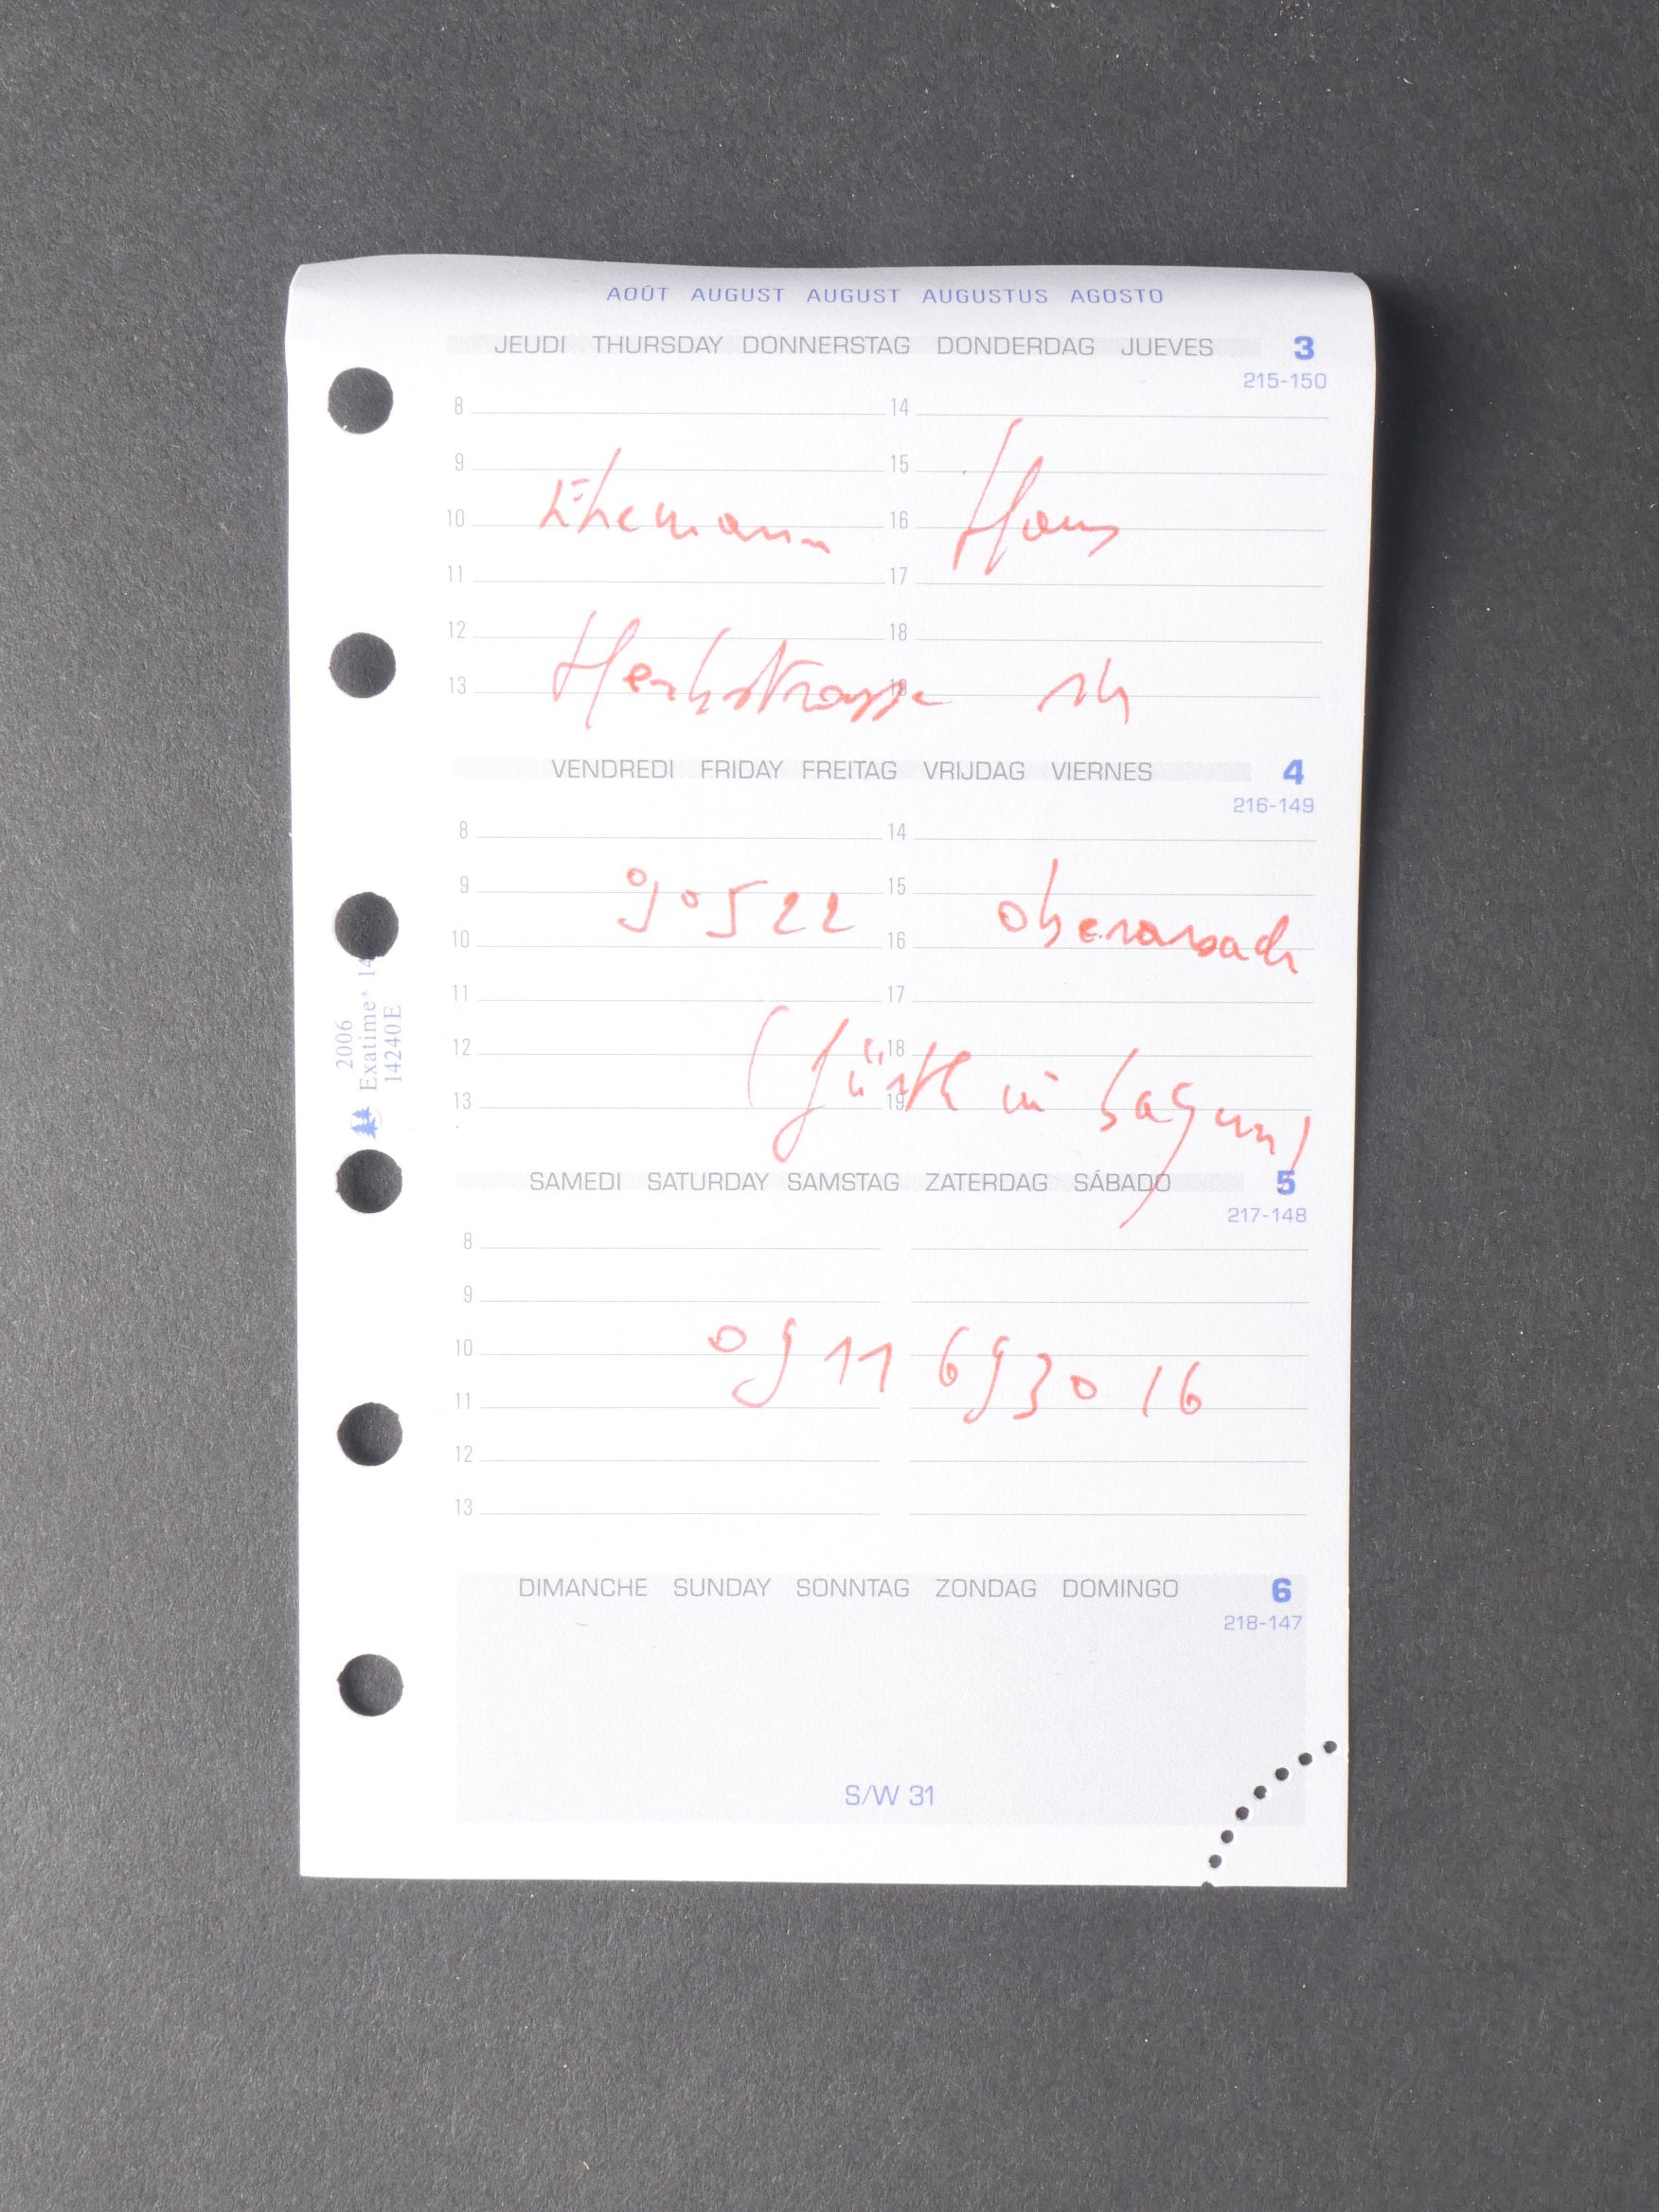 AOÛT AUGUST AUGUST AUGUSTUS AGOSTO
JEUDI THURSDAY DONNERSTAG DONDERDAG JUEVES 3
215-150
8 14
9 15
10 16
11 17
12 18
13 19
Ehemann Hans
Herbststrasse 14
VENDREDI FRIDAY FREITAG VRIJDAG VIERNES 4
216-149
8 14
9 15
10 16
11 17
12 18
13 19
90522 Oberasbach
(Fürth in Bayern)
SAMEDI SATURDAY SAMSTAG ZATERDAG SÁBADO 5
217-148
8
9
10
11
12
13
0911 693016
DIMANCHE SUNDAY SONNTAG ZONDAG DOMINGO 6
218-147
S/W 31
2006
Exatime* 14
14240E